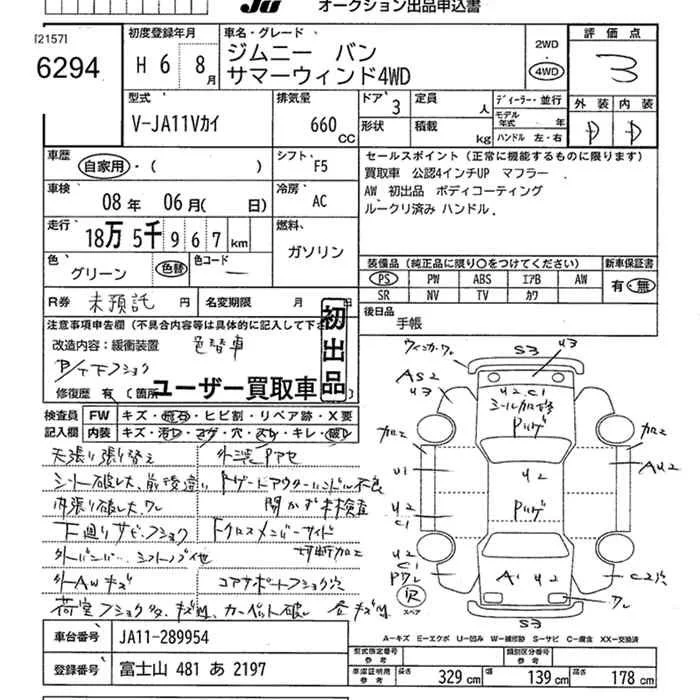 Ju オークション出品申込書
[2157]
6294
初度登録年月
H 6年 8月
車名・グレード
ジムニー バン
サマーウィンド4WD
2WD
4WD
評価点
3
型式
V-JA11Vカイ
排気量
660 CC
ドア 3
定員 人
ディーラー・並行
形状
積載 kg
モデル年式 年
ハンドル 左・右
外装 内装
D D
車歴
自家用・( )
シフト F5
車検
08年 06月( 日)
冷房 AC
走行
18万 5千 9 6 7 km
燃料
ガソリン
色 グリーン
色替
色コード ー
セールスポイント(正常に機能するものに限ります)
買取車 公認4インチUP マフラー
AW 初出品 ボディコーティング
ルークリ済み ハンドル
装備品(純正品に限り○をつけてください)
新車保証書
PS PW ABS エアB AW
SR NV TV カワ
有・無
R券 未預託 円
名変期限 月 日
後日品
手帳
注意事項申告欄(不具合内容等は具体的に記入して下さ
改造内容:緩衝装置 色替車
下フショク
修復歴 有(箇所
初出品
ユーザー買取車
検査員 FW キズ・飛石・ヒビ割・リペア跡・X要
記入欄 内装 キズ・汚レ・コゲ・穴・スレ・キレ・破レ
天張り張替え
外装Pアセ
シート破レ大、前後違い
ドゲートアウターハンドル不良
内張り破レ大、ワレ
開かず未検査
下廻りサビ・フショク
Fクロスメンバーサイド
切断加工
外バンパー、シフトノブ他
外AWキズ
コアサポートフショク穴
荷室フショク多、キズ凹、カーペット破レ
ウィンカーワレ
S3
U3
AS2
U3
U2、C1
Pリゲ
加工
加工
U1
U2
AU2
U2
C1
Pリゲ
U2
C1
Pワレ
A1 U2
C2穴
R
スペア
ワレ
S3
A-キズ E-エクボ U-凹み W-補修跡 S-サビ C-腐食 XX-交換済
車台番号 JA11-289954
登録番号 富士山 481 あ 2197
型式指定番号 参考
類別区分番号 参考
車庫証明用 参考
長さ 329 cm
幅 139 cm
高さ 178 cm